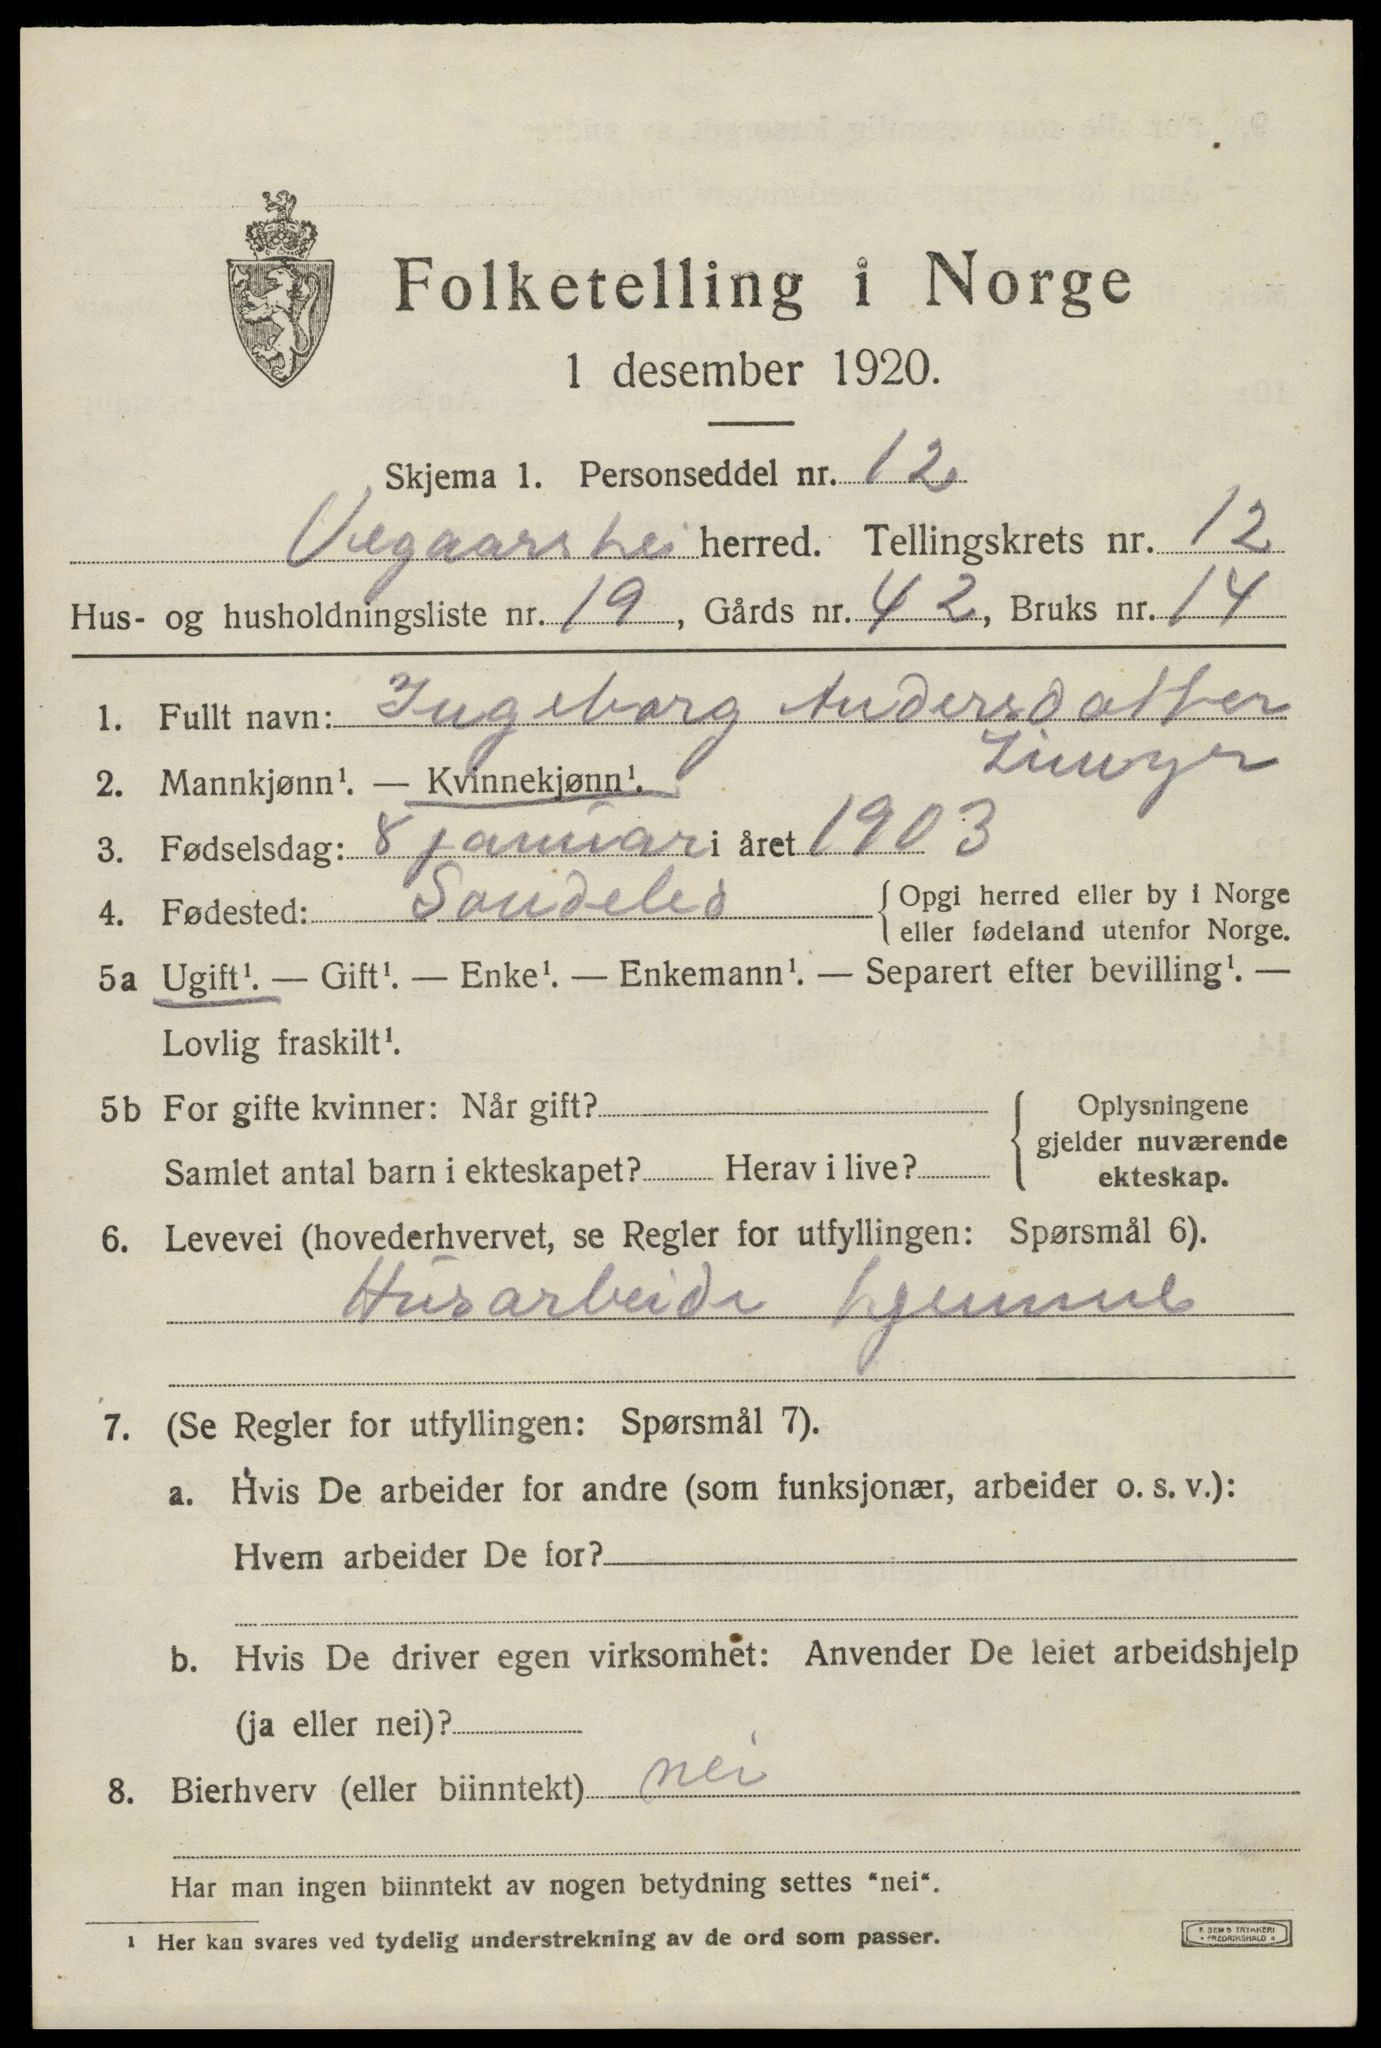 Folketelling i Norge
1 desember 1920.
Skjema 1. Personseddel nr. 12
Vegaarshei herred. Tellingskrets nr. 12
Hus- og husholdningsliste nr. 19, Gårds nr. 42, Bruks nr. 14
1. Fullt navn: Ingeborg Andersdatter
Limyr
2. Mannkjønn¹. — Kvinnekjønn¹.
3. Fødselsdag: 8 januar i året 1903
4. Fødested: Sondeled { Opgi herred eller by i Norge
eller fødeland utenfor Norge.
5a Ugift¹. — Gift¹. — Enke¹. — Enkemann¹. — Separert efter bevilling¹. —
Lovlig fraskilt¹.
5b For gifte kvinner: Når gift? { Oplysningene
gjelder nuværende
Samlet antal barn i ekteskapet? Herav i live?
ekteskap.
6. Levevei (hovederhvervet, se Regler for utfyllingen: Spørsmål 6).
Husarbeide hjemme
7. (Se Regler for utfyllingen: Spørsmål 7).
a. Hvis De arbeider for andre (som funksjonær, arbeider o. s. v.):
Hvem arbeider De for?
b. Hvis De driver egen virksomhet: Anvender De leiet arbeidshjelp
(ja eller nei)?
8. Bierhverv (eller biinntekt) nei
Har man ingen biinntekt av nogen betydning settes "nei".
¹ Her kan svares ved tydelig understrekning av de ord som passer.
F. SEMS TRYKKERI
FREDRIKSHALD